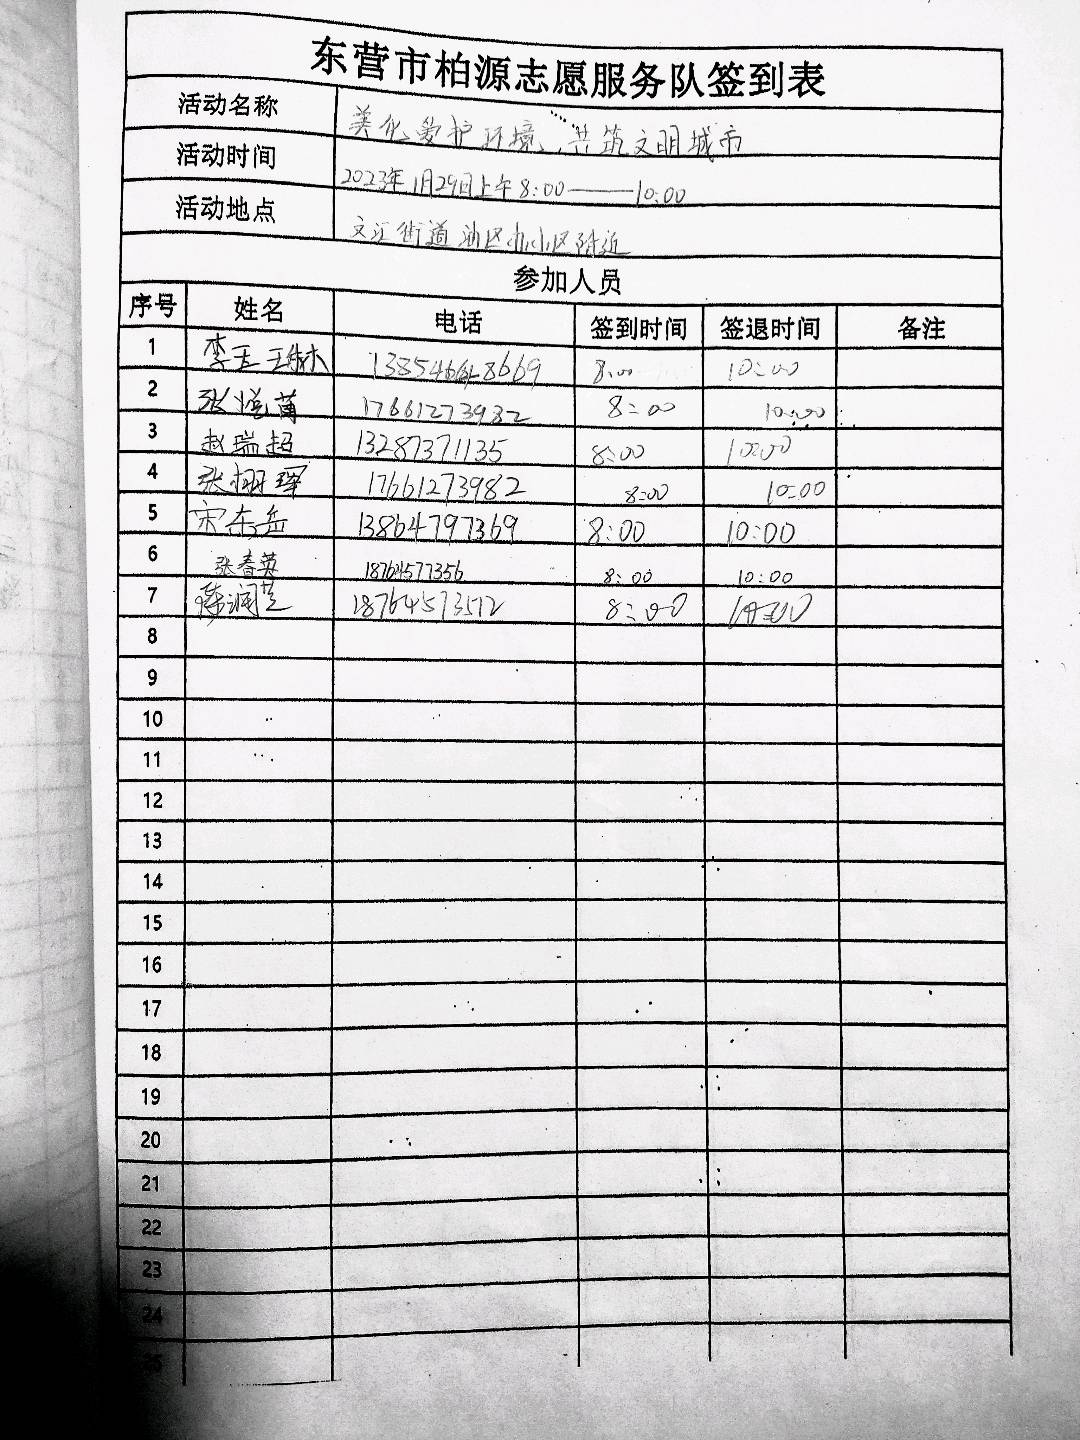 东营市柏源志愿服务队签到表
活动名称 美化爱护环境，共筑文明城市
活动时间 2023年1月29日上午8:00——10:00
活动地点 文汇街道油区小区附近
参加人员
序号 姓名 电话 签到时间 签退时间 备注
1 李玉 8:00 10:00
2 17661273982 8:00 10:00
3 赵瑞超 13287371135 8:00 10:00
4 张栩珲 17661273982 8:00 10:00
5 宋东岳 13864797369 8:00 10:00
6 张春英 18764577356 8:00 10:00
7 润芝 18764573572 8:00 10:00
8
9
10
11
12
13
14
15
16
17
18
19
20
21
22
23
24
25